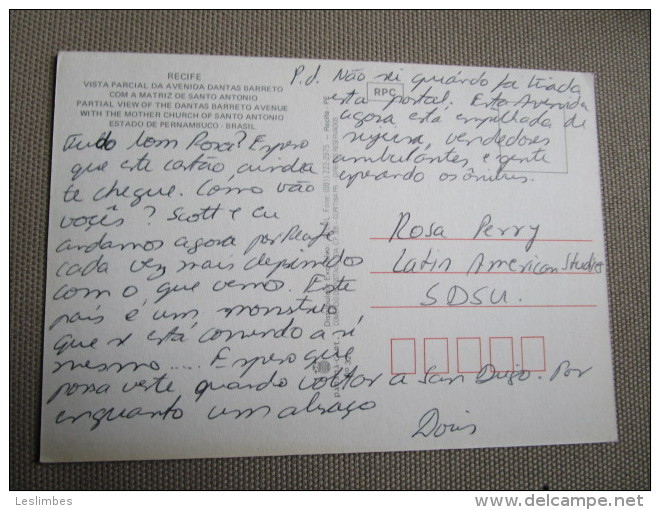 RECIFE
VISTA PARCIAL DA AVENIDA DANTAS BARRETO
COM A MATRIZ DE SANTO ANTONIO
PARTIAL VIEW OF THE DANTAS BARRETO AVENUE
WITH THE MOTHER CHURCH OF SANTO ANTONIO
ESTADO DE PERNAMBUCO - BRASIL
Tudo bom Rosa? Espero
que este cartão, ainda
te chegue. Como vão
voçês? Scott e eu
andamos agora por Recife
cada vez mais deprimidos
com o que vemos. Este
pais é um monstruo
que está comendo a si
mesmo..... Espero que
possa verte quando voltar a San Diego. Por
enquanto um abraço
Doris
P.d. Não sei quando fa tirada
esta postal. Esta Avenida
agora está empilhada de
vendedores
ambulantes e gente
esperando os ônibus.
RPC
Rosa Perry
Latin American Studies
SDSU.
Leslimbes